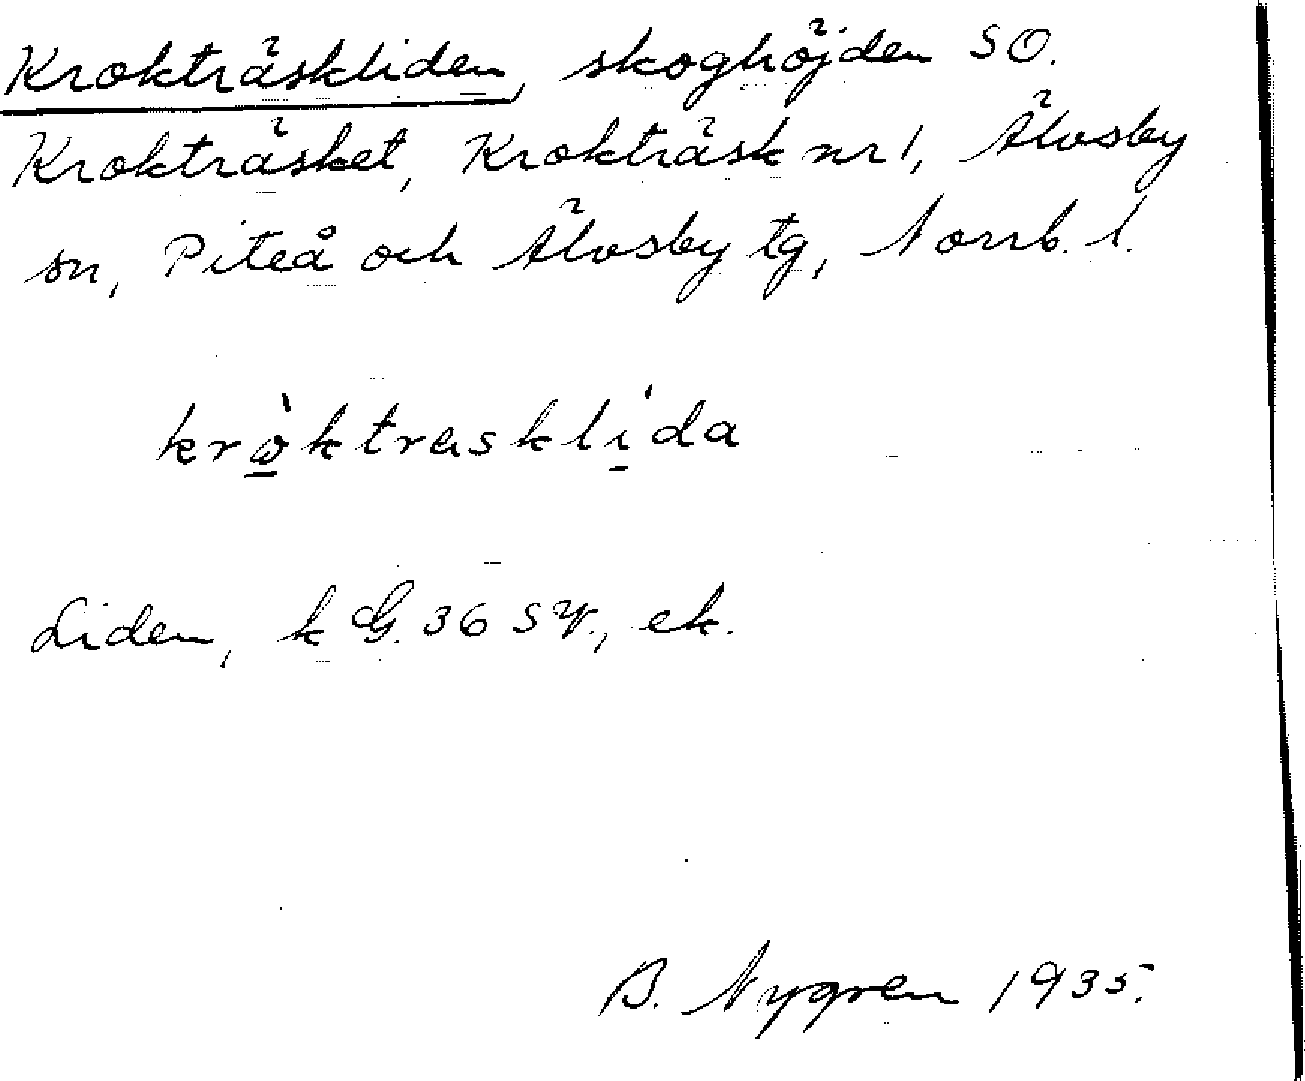 Krokträskliden, skoghöjden SO.
Krokträsket, Krokträsk nr 1, Älvsby
sn, Piteå och Älvsby tg, Norrb. l.
kròktrasklída
Liden, k G. 36 SV., ek.
B. Nygren 1935.